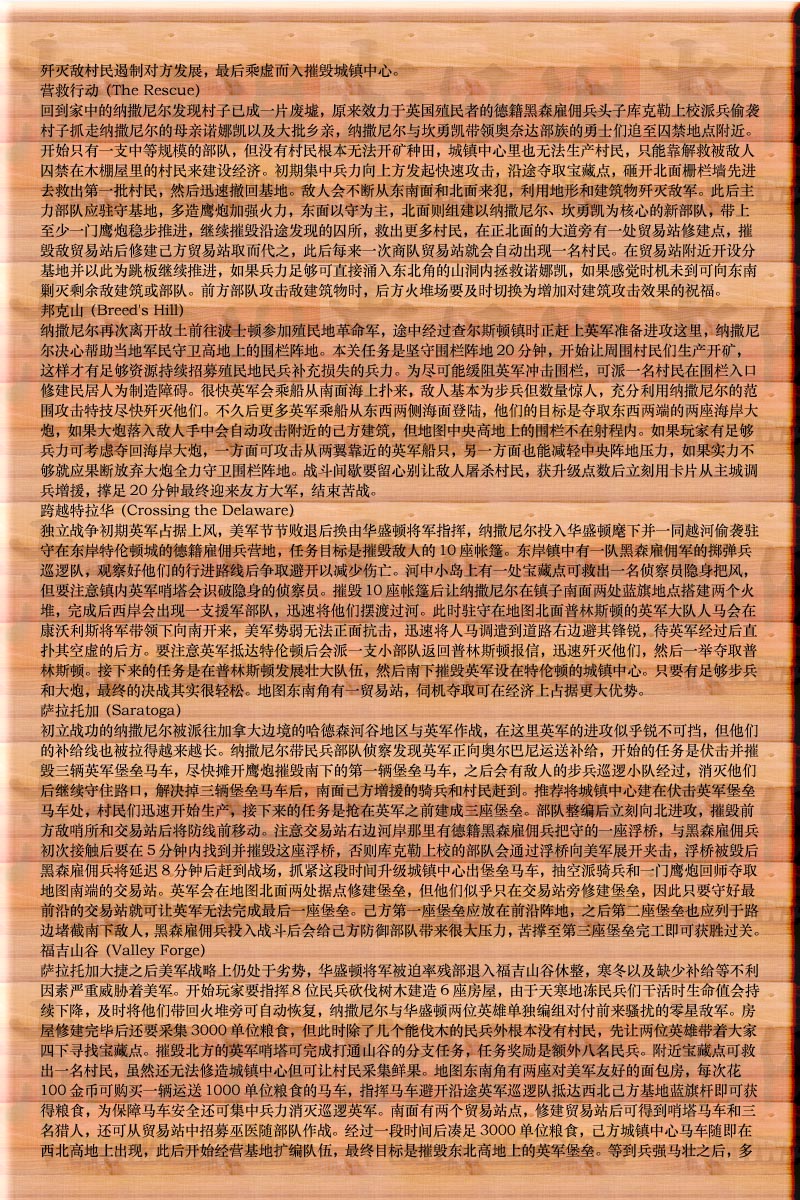 歼灭敌村民遏制对方发展，最后乘虚而入摧毁城镇中心。
营救行动 (The Rescue)
回到家中的纳撒尼尔发现村子已成一片废墟，原来效力于英国殖民者的德籍黑森雇佣兵头子库克勒上校派兵偷袭
村子抓走纳撒尼尔的母亲诺娜凯以及大批乡亲，纳撒尼尔与坎勇凯带领奥奈达部族的勇士们追至囚禁地点附近。
开始只有一支中等规模的部队，但没有村民根本无法开矿种田，城镇中心里也无法生产村民，只能靠解救被敌人
囚禁在木棚屋里的村民来建设经济。初期集中兵力向上方发起快速攻击，沿途夺取宝藏点，砸开北面栅栏墙先进
去救出第一批村民，然后迅速撤回基地。敌人会不断从东南面和北面来犯，利用地形和建筑物歼灭敌军。此后主
力部队应驻守基地，多造鹰炮加强火力，东面以守为主，北面则组建以纳撒尼尔、坎勇凯为核心的新部队，带上
至少一门鹰炮稳步推进，继续摧毁沿途发现的囚所，救出更多村民，在正北面的大道旁有一处贸易站修建点，摧
毁敌贸易站后修建己方贸易站取而代之，此后每来一次商队贸易站就会自动出现一名村民。在贸易站附近开设分
基地并以此为跳板继续推进，如果兵力足够可直接涌入东北角的山洞内拯救诺娜凯，如果感觉时机未到可向东南
剿灭剩余敌建筑或部队。前方部队攻击敌建筑物时，后方火堆场要及时切换为增加对建筑攻击效果的祝福。
邦克山 (Breed's Hill)
纳撒尼尔再次离开故土前往波士顿参加殖民地革命军，途中经过查尔斯顿镇时正赶上英军准备进攻这里，纳撒尼
尔决心帮助当地军民守卫高地上的围栏阵地。本关任务是坚守围栏阵地 20 分钟，开始让周围村民们生产开矿，
这样才有足够资源持续招募殖民地民兵补充损失的兵力。为尽可能缓阻英军冲击围栏，可派一名村民在围栏入口
修建民居人为制造障碍。很快英军会乘船从南面海上扑来，敌人基本为步兵但数量惊人，充分利用纳撒尼尔的范
围攻击特技尽快歼灭他们。不久后更多英军乘船从东西两侧海面登陆，他们的目标是夺取东西两端的两座海岸大
炮，如果大炮落入敌人手中会自动攻击附近的己方建筑，但地图中央高地上的围栏不在射程内。如果玩家有足够
兵力可考虑夺回海岸大炮，一方面可攻击从两翼靠近的英军船只，另一方面也能减轻中央阵地压力，如果实力不
够就应果断放弃大炮全力守卫围栏阵地。战斗间歇要留心别让敌人屠杀村民，获升级点数后立刻用卡片从主城调
兵增援，撑足 20 分钟最终迎来友方大军，结束苦战。
跨越特拉华 (Crossing the Delaware)
独立战争初期英军占据上风，美军节节败退后换由华盛顿将军指挥，纳撒尼尔投入华盛顿麾下并一同越河偷袭驻
守在东岸特伦顿城的德籍雇佣兵营地，任务目标是摧毁敌人的 10 座帐篷。东岸镇中有一队黑森雇佣军的掷弹兵
巡逻队，观察好他们的行进路线后争取避开以减少伤亡。河中小岛上有一处宝藏点可救出一名侦察员隐身把风，
但要注意镇内英军哨塔会识破隐身的侦察员。摧毁 10 座帐篷后让纳撒尼尔在镇子南面两处蓝旗地点搭建两个火
堆，完成后西岸会出现一支援军部队，迅速将他们摆渡过河。此时驻守在地图北面普林斯顿的英军大队人马会在
康沃利斯将军带领下向南开来，美军势弱无法正面抗击，迅速将人马调遣到道路右边避其锋锐，待英军经过后直
扑其空虚的后方。要注意英军抵达特伦顿后会派一支小部队返回普林斯顿报信，迅速歼灭他们，然后一举夺取普
林斯顿。接下来的任务是在普林斯顿发展壮大队伍，然后南下摧毁英军设在特伦顿的城镇中心。只要有足够步兵
和大炮，最终的决战其实很轻松。地图东南角有一贸易站，伺机夺取可在经济上占据更大优势。
萨拉托加 (Saratoga)
初立战功的纳撒尼尔被派往加拿大边境的哈德森河谷地区与英军作战，在这里英军的进攻似乎锐不可挡，但他们
的补给线也被拉得越来越长。纳撒尼尔带民兵部队侦察发现英军正向奥尔巴尼运送补给，开始的任务是伏击并摧
毁三辆英军堡垒马车，尽快摊开鹰炮摧毁南下的第一辆堡垒马车，之后会有敌人的步兵巡逻小队经过，消灭他们
后继续守住路口，解决掉三辆堡垒马车后，南面己方增援的骑兵和村民赶到。推荐将城镇中心建在伏击英军堡垒
马车处，村民们迅速开始生产，接下来的任务是抢在英军之前建成三座堡垒。部队整编后立刻向北进攻，摧毁前
方敌哨所和交易站后将防线前移动。注意交易站右边河岸那里有德籍黑森雇佣兵把守的一座浮桥，与黑森雇佣兵
初次接触后要在 5 分钟内找到并摧毁这座浮桥，否则库克勒上校的部队会通过浮桥向美军展开夹击，浮桥被毁后
黑森雇佣兵将延迟 8 分钟后赶到战场，抓紧这段时间升级城镇中心出堡垒马车，抽空派骑兵和一门鹰炮回师夺取
地图南端的交易站。英军会在地图北面两处据点修建堡垒，但他们似乎只在交易站旁修建堡垒，因此只要守好最
前沿的交易站就可让英军无法完成最后一座堡垒。己方第一座堡垒应放在前沿阵地，之后第二座堡垒也应列于路
边堵截南下敌人，黑森雇佣兵投入战斗后会给己方防御部队带来很大压力，苦撑至第三座堡垒完工即可获胜过关。
福吉山谷 (Valley Forge)
萨拉托加大捷之后美军战略上仍处于劣势，华盛顿将军被迫率残部退入福吉山谷休整，寒冬以及缺少补给等不利
因素严重威胁着美军。开始玩家要指挥 8 位民兵砍伐树木建造 6 座房屋，由于天寒地冻民兵们干活时生命值会持
续下降，及时将他们带回火堆旁可自动恢复，纳撒尼尔与华盛顿两位英雄单独编组对付前来骚扰的零星敌军。房
屋修建完毕后还要采集 3000 单位粮食，但此时除了几个能伐木的民兵外根本没有村民，先让两位英雄带着大家
四下寻找宝藏点。摧毁北方的英军哨塔可完成打通山谷的分支任务，任务奖励是额外八名民兵。附近宝藏点可救
出一名村民，虽然还无法修造城镇中心但可让村民采集鲜果。地图东南角有两座对美军友好的面包房，每次花
100 金币可购买一辆运送 1000 单位粮食的马车，指挥马车避开沿途英军巡逻队抵达西北己方基地蓝旗杆即可获
得粮食，为保障马车安全还可集中兵力消灭巡逻英军。南面有两个贸易站点，修建贸易站后可得到哨塔马车和三
名猎人，还可从贸易站中招募巫医随部队作战。经过一段时间后凑足 3000 单位粮食，己方城镇中心马车随即在
西北高地上出现，此后开始经营基地扩编队伍，最终目标是摧毁东北高地上的英军堡垒。等到兵强马壮之后，多